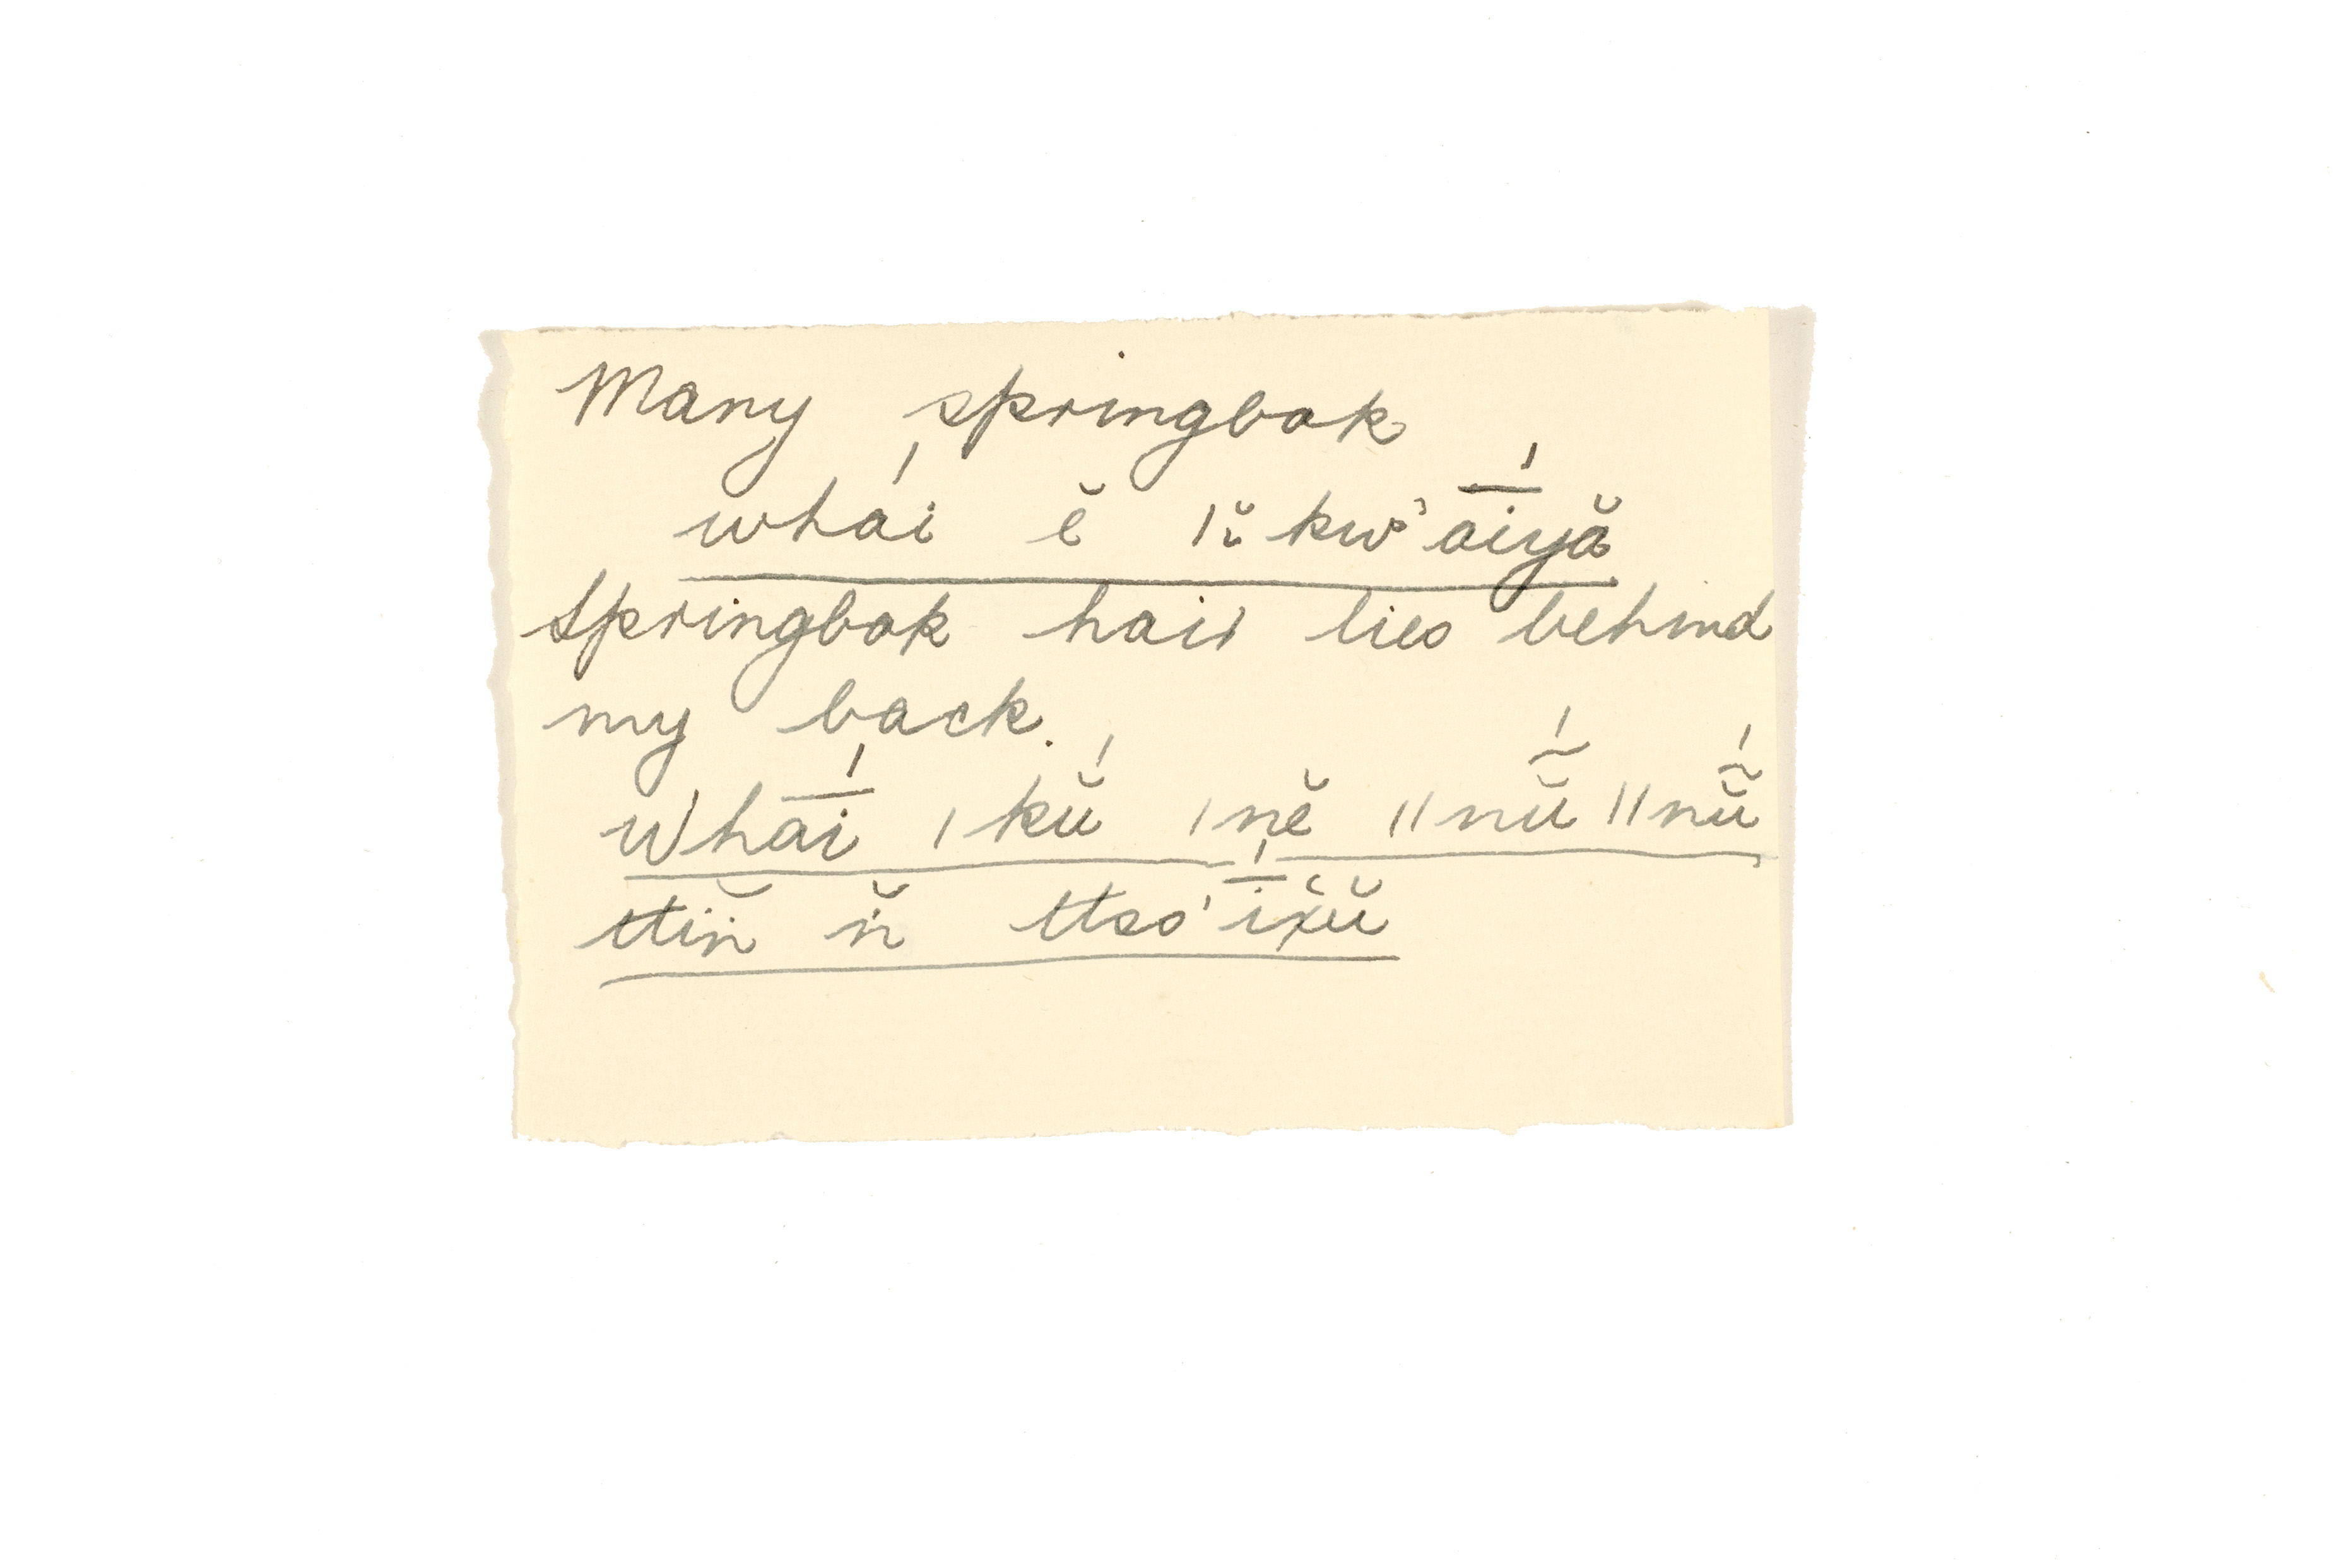 Many springbok
whái ĕ |ĭ̯ kwʾā́iyă
Springbok hair lies behind
my back.
Whā́i |kŭ́ |nĕ ||nŭ̃́ ||nŭ̃́
ttĭn̈ n̆̈ ttss'ī́χŭ